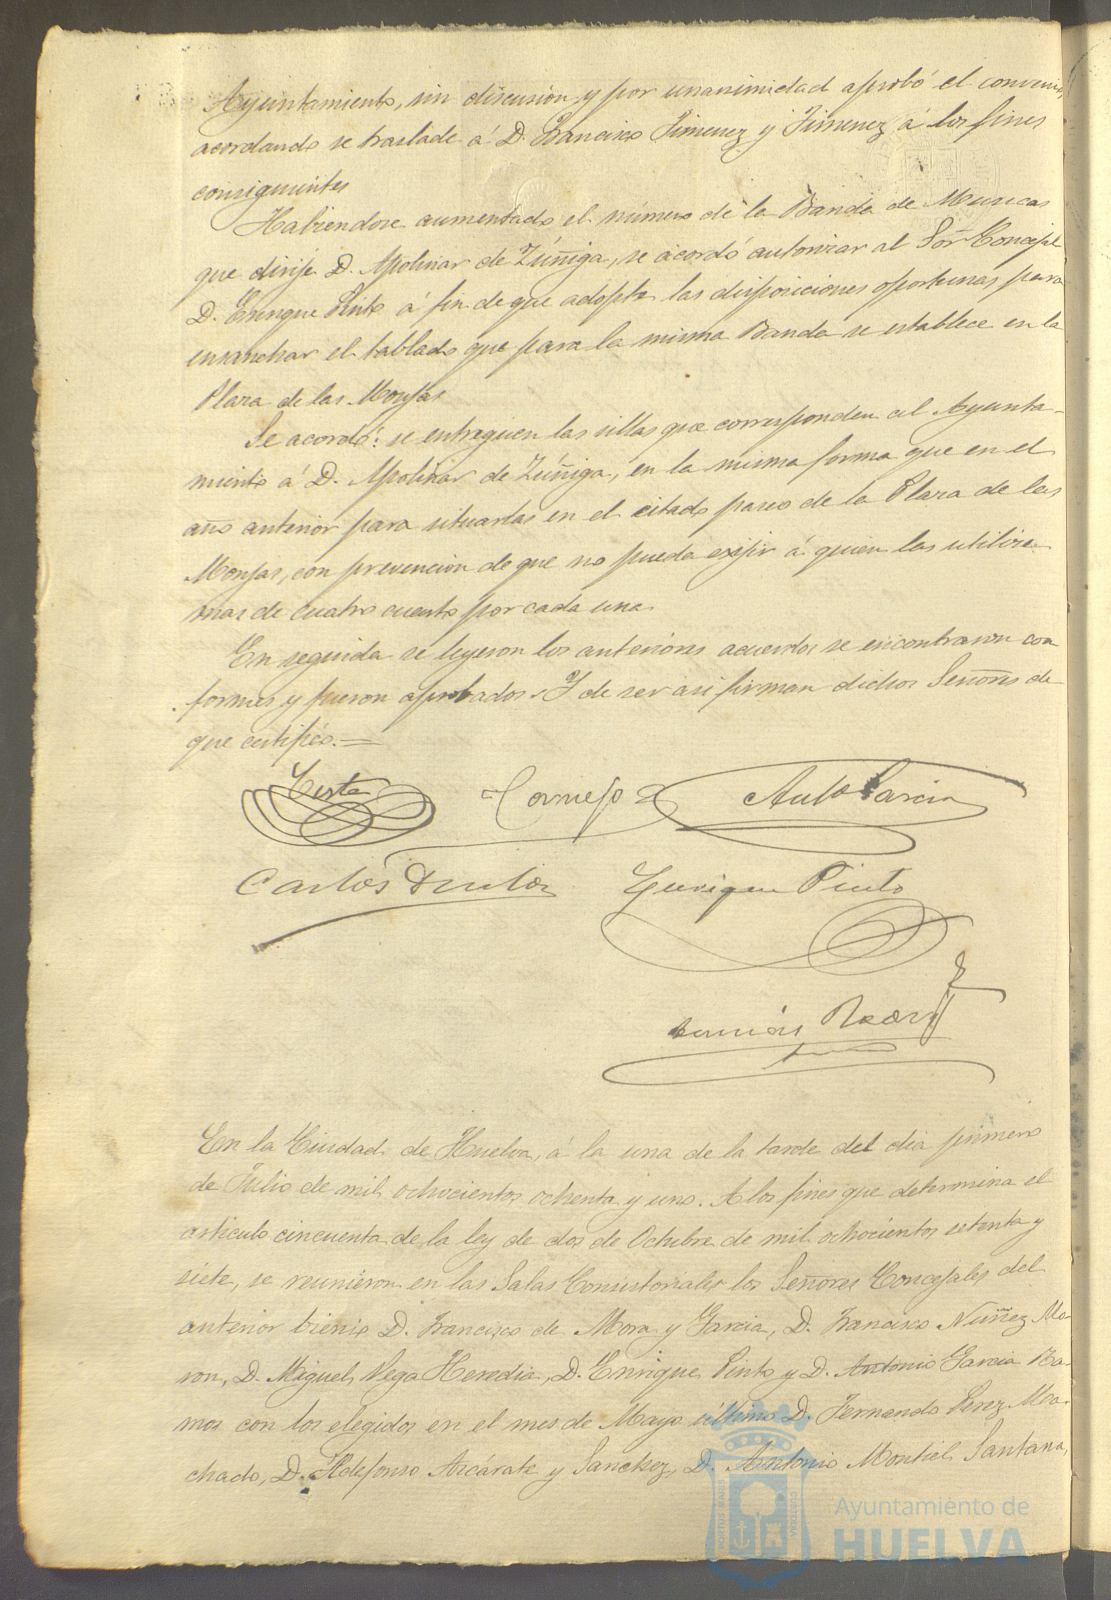 Ayuntamiento, sin discusion y por unanimidad aprobó el convenio,
acordando se traslade á D. Francisco Jimenez y Jimenez á los fines
consiguientes
Habiendose aumentado el número de la Banda de Musicas
que dirije D. Apolinar de Zúñiga, se acordó autorizar al Sor. Concejal
D. Enrique Pinto á fin de que adopte las disposiciones oportunas para
ensanchar el tablado que para la misma Banda se establece en la
Plaza de las Monjas
Se acordó: se entreguen las sillas que corresponden al Ayunta-
miento á D. Apolinar de Zúñiga, en la misma forma que en el
año anterior para situarlas en el citado paseo de la Plaza de las
Monjas, con prevencion de que no pueda exijir á quien las utilize
mas de cuatro cuartos por cada una
En seguida se leyeron los anteriores acuerdos se encontraron con
formes y fueron aprobados. Y de ser asi firman dichos Señores de
que certifico.=
Cornejo
Anto Garcia
Carlos
Enrique Pinto
En la Ciudad de Huelva, á la una de la tarde del dia primero
de Julio de mil ochocientos ochenta y uno. A los fines que determina el
articulo cincuenta de la ley de dos de Octubre de mil ochocientos setenta y
siete, se reunieron en las Salas Consistoriales los Señores Concejales del
anterior bienio D. Francisco de Mora y Garcia, D. Francisco Nuñez Mo-
ron, D. Miguel Vega Heredia, D. Enrique Pinto y D. Antonio Garcia Ra-
mos con los elegidos en el mes de Mayo último D. Fernando Perez Ma-
chado, D. Ildefonso Azcárate y Sanchez, D. Antonio Montiel Santana,
Ayuntamiento de
HUELVA